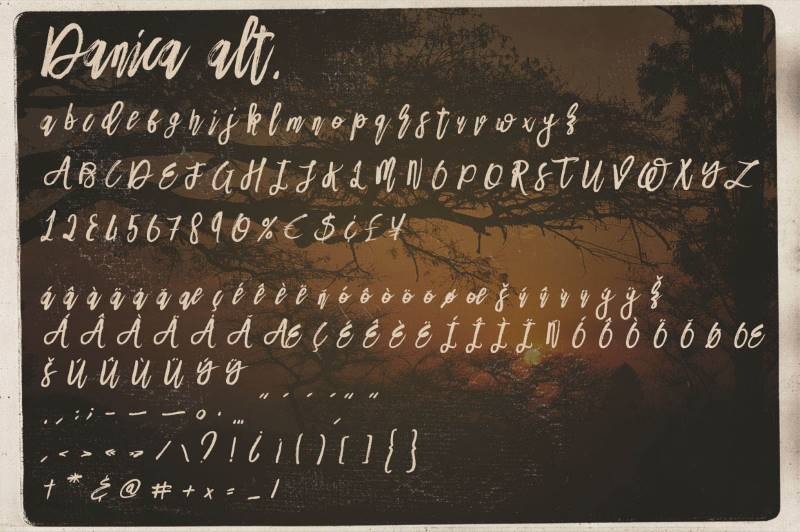 Danica alt.
a b c d e f g h i j k l m n o p q r s t u v w x y z
A B C D E F G H I J K L M N O P Q R S T U V W X Y Z
1 2 3 4 5 6 7 8 9 0 % € $ ¢ £ ¥
á â à ä å ã æ ç é ê è ë ñ ó ô ò ö õ ø œ š ú û ù ü ý ÿ ž
Á Â À Ä Å Ã Æ Ç É Ê È Ë Í Î Ì Ï Ñ Ó Ô Ò Ö Õ Ø Œ
Š Ú Û Ù Ü Ý Ÿ
. , : ; - – — o · …
, < > « » / \ ? ! ¿ ¡ ( ) [ ] { }
† * & @ # + x = _ |